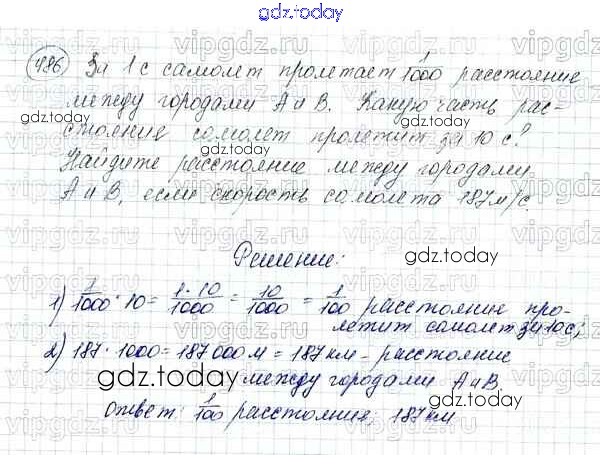 gdz.today
486 За 1 с самолет пролетает 1/1000 расстояние
между городами А и В. Какую часть рас-
стояния самолет пролетит за 10 с?
Найдите расстояние между городами
А и В, если скорость самолета 187 м/с.
Решение:
1) 1/1000 · 10 = 1·10/1000 = 10/1000 = 1/100 расстояние про-
летит самолет за 10 с;
2) 187 · 1000 = 187 000 м = 187 км – расстояние
между городами А и В.
Ответ: 1/100 расстояния, 187 км